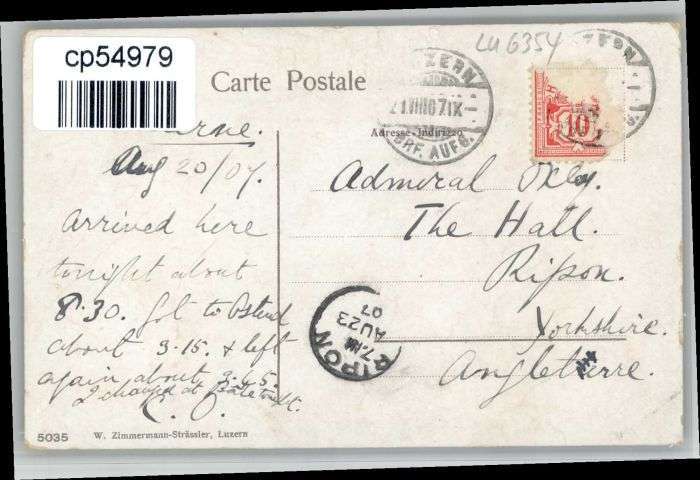 cp54979
LU 6354
Carte Postale
LUZERN
21.VIII.07.IX
BRF. AUFG.
10
Adresse-Indirizzo
Aug 20/07.
arrived here
tonight about
8.30. Got to Ostend
about 3.15. & left
again about 3.45.
I changed at
Admiral
The Hall.
Ripon.
Yorkshire.
Angleterre.
RIPON
7. AM
AU 23
07
5035 W. Zimmermann-Strässler, Luzern